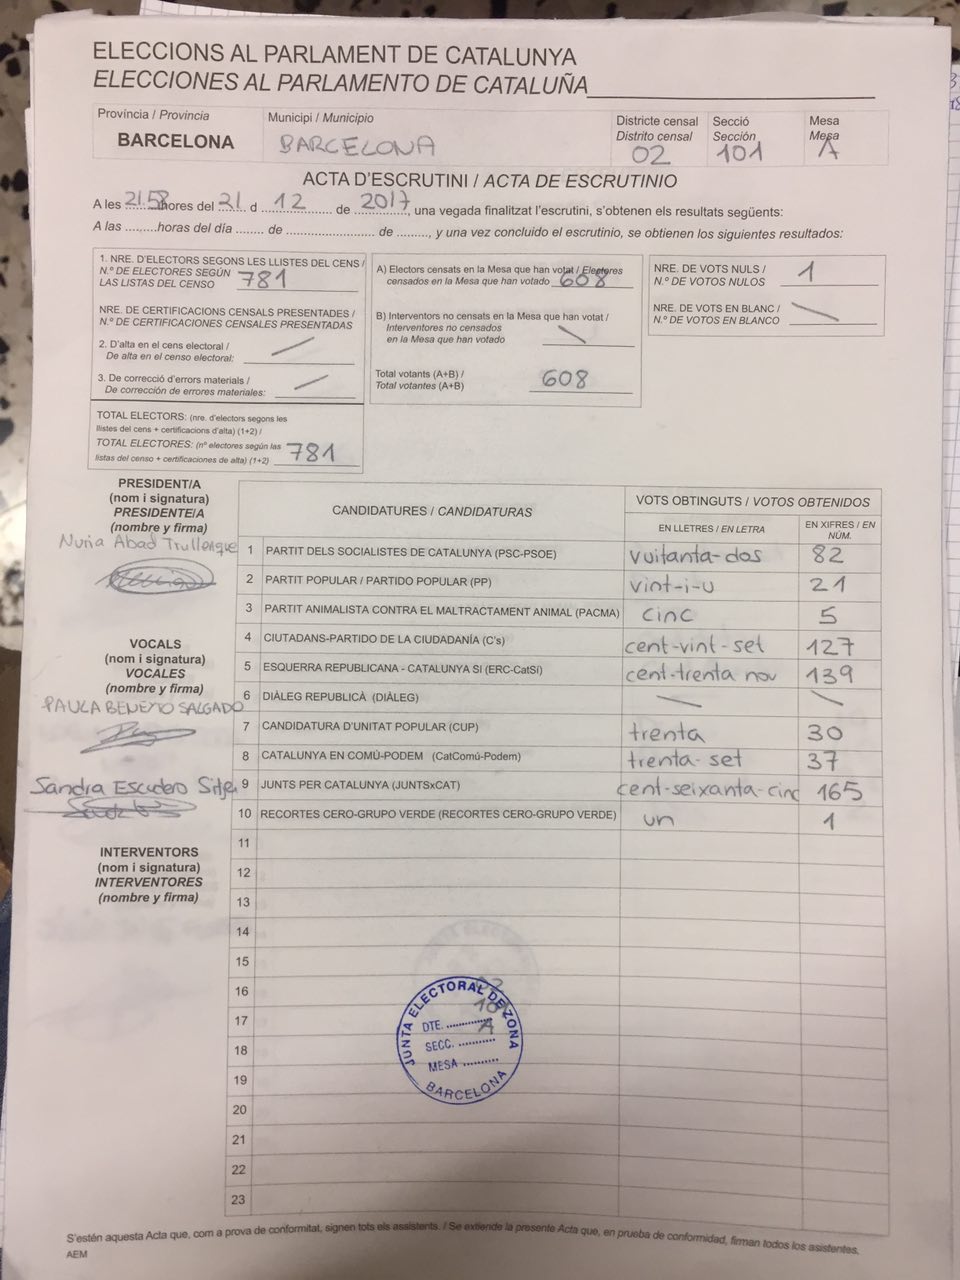 ELECCIONS AL PARLAMENT DE CATALUNYA
ELECCIONES AL PARLAMENTO DE CATALUÑA
Província / Provincia
BARCELONA
Municipi / Municipio
BARCELONA
Districte censal
Distrito censal
02
Secció
Sección
101
Mesa
Mesa
A
ACTA D'ESCRUTINI / ACTA DE ESCRUTINIO
A les 21.58 hores del 21 d 12 de 2017, una vegada finalitzat l'escrutini, s'obtenen els resultats següents:
A las .........horas del día ........ de ...................... de ........, y una vez concluido el escrutinio, se obtienen los siguientes resultados:
1. NRE. D'ELECTORS SEGONS LES LLISTES DEL CENS /
N.º DE ELECTORES SEGÚN
LAS LISTAS DEL CENSO 781
NRE. DE CERTIFICACIONS CENSALS PRESENTADES /
N.º DE CERTIFICACIONES CENSALES PRESENTADAS
2. D'alta en el cens electoral /
De alta en el censo electoral:
3. De correcció d'errors materials /
De corrección de errores materiales:
TOTAL ELECTORS: (nre. d'electors segons les
llistes del cens + certificacions d'alta) (1+2) /
TOTAL ELECTORES: (nº electores según las
listas del censo + certificaciones de alta) (1+2) 781
A) Electors censats en la Mesa que han votat / Electores
censados en la Mesa que han votado 608
B) Interventors no censats en la Mesa que han votat /
Interventores no censados
en la Mesa que han votado
Total votants (A+B) /
Total votantes (A+B) 608
NRE. DE VOTS NULS /
N.º DE VOTOS NULOS 1
NRE. DE VOTS EN BLANC /
N.º DE VOTOS EN BLANCO
PRESIDENT/A
(nom i signatura)
PRESIDENTE/A
(nombre y firma)
Nuria Abad Trullenque
VOCALS
(nom i signatura)
VOCALES
(nombre y firma)
PAULA BENEYTO SALGADO
Sandra Escudero
INTERVENTORS
(nom i signatura)
INTERVENTORES
(nombre y firma)
CANDIDATURES / CANDIDATURAS
VOTS OBTINGUTS / VOTOS OBTENIDOS
EN LLETRES / EN LETRA
EN XIFRES / EN
NÚM.
1 PARTIT DELS SOCIALISTES DE CATALUNYA (PSC-PSOE) vuitanta-dos 82
2 PARTIT POPULAR / PARTIDO POPULAR (PP) vint-i-u 21
3 PARTIT ANIMALISTA CONTRA EL MALTRACTAMENT ANIMAL (PACMA) cinc 5
4 CIUTADANS-PARTIDO DE LA CIUDADANÍA (C's) cent-vint-set 127
5 ESQUERRA REPUBLICANA - CATALUNYA SI (ERC-CatSí) cent-trenta nou 139
6 DIÀLEG REPUBLICÀ (DIÀLEG)
7 CANDIDATURA D'UNITAT POPULAR (CUP) trenta 30
8 CATALUNYA EN COMÚ-PODEM (CatComú-Podem) trenta-set 37
9 JUNTS PER CATALUNYA (JUNTSxCAT) cent-seixanta-cinc 165
10 RECORTES CERO-GRUPO VERDE (RECORTES CERO-GRUPO VERDE) un 1
11
12
13
14
15
16
17
18
19
20
21
22
23
JUNTA ELECTORAL DE ZONA
DTE. .......... 02
SECC. .......... 101
MESA .......... A
BARCELONA
S'estén aquesta Acta que, com a prova de conformitat, signen tots els assistents. / Se extiende la presente Acta que, en prueba de conformidad, firman todos los asistentes.
AEM